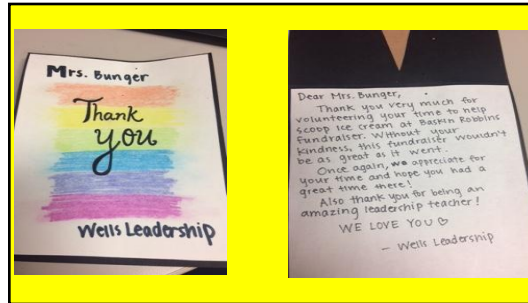 Mrs. Bunger
Thank
you
Wells Leadership
Dear Mrs. Bunger,
Thank you very much for
volunteering your time to help
scoop ice cream at Baskin Robbins
fundraiser. Without your
kindness, this fundraiser wouldn't
be as great as it went.
Once again, we appreciate for
your time and hope you had a
great time there!
Also thank you for being an
amazing leadership teacher!
WE LOVE YOU ♡
- Wells Leadership